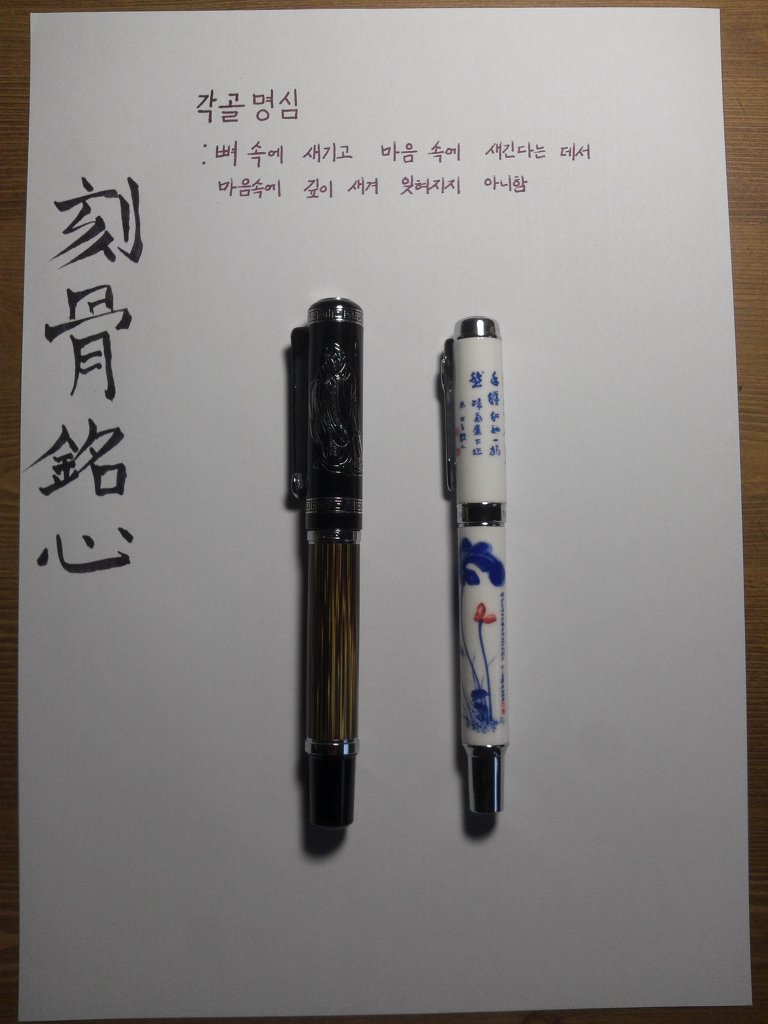 각골명심
: 뼈 속에 새기고 마음 속에 새긴다는 데서
마음속에 깊이 새겨 잊혀지지 아니함
刻骨銘心